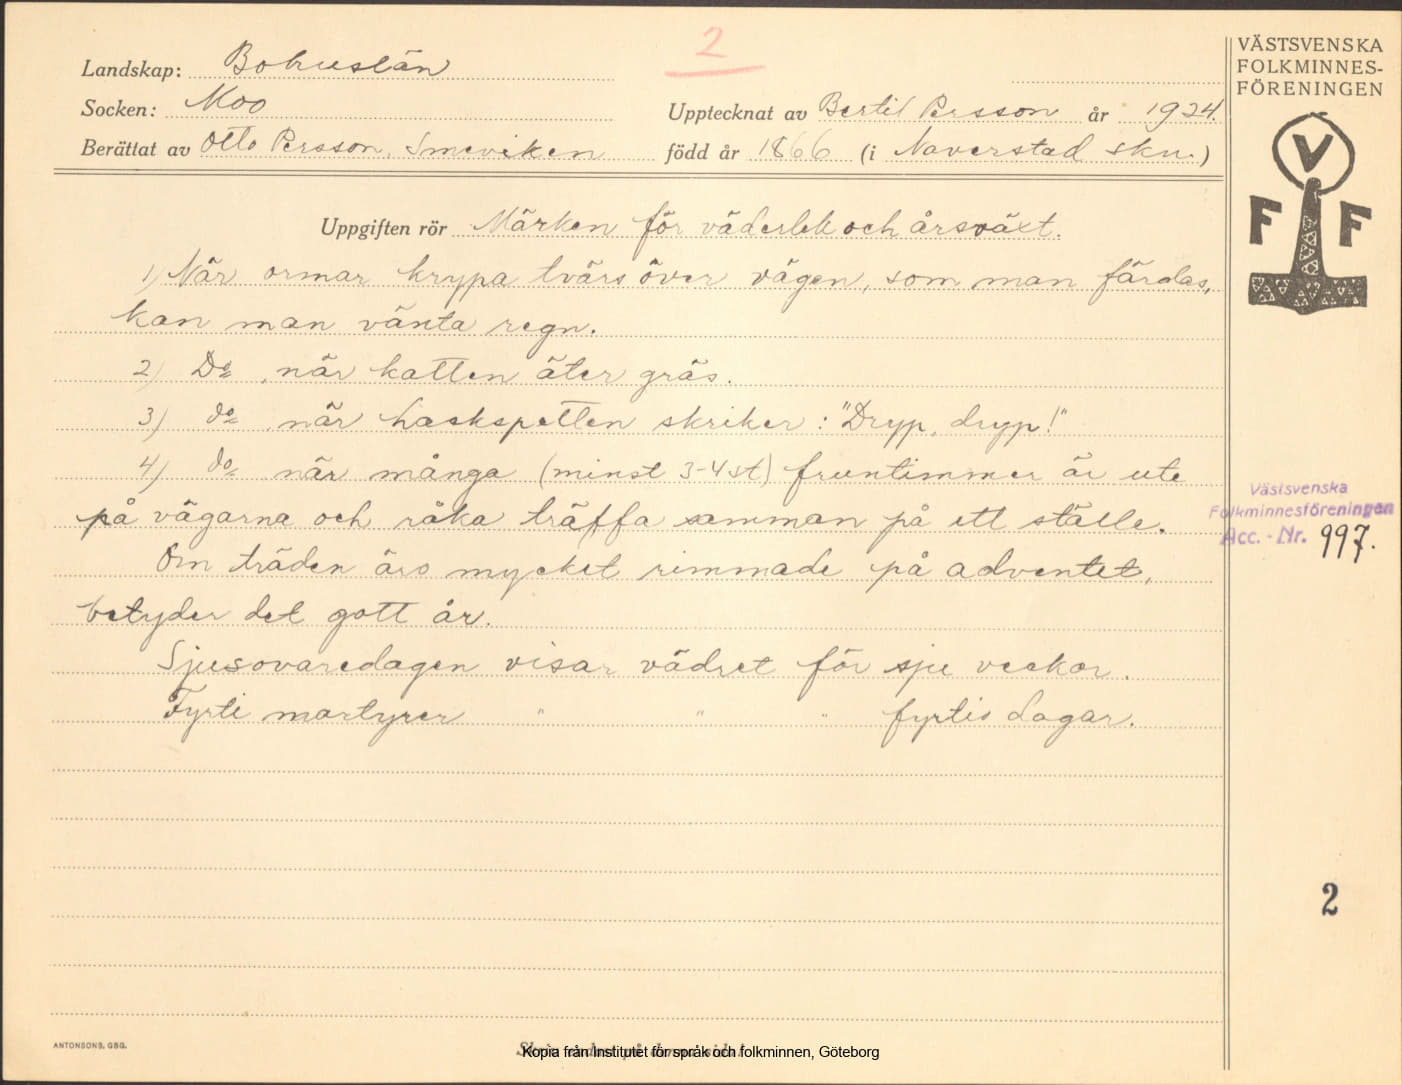 2
Landskap: Bohuslän
Socken: Moo
Upptecknat av Bertil Persson år 1924.
Berättat av Otto Persson, Smeviken född år 1866 (i Naverstad skn.)
VÄSTSVENSKA
FOLKMINNES-
FÖRENINGEN
V
F F
Uppgiften rör Märken för väderlek och årsväxt.
1) När ormar krypa tvärs över vägen, som man färdas,
kan man vänta regn.
2) Do, när katten äter gräs.
3) do, när hackspetten skriker: "Dryp, dryp!"
4) do, när många (minst 3-4 st) fruntimmer är ute
på vägarna och råka träffa samman på ett ställe.
Om träden äro mycket rimmade på adventet,
betyder det gott år.
Sjusovaredagen visar vädret för sju veckor.
Fyrti martyrer " " " fyrtio dagar.
Västsvenska
Folkminnesföreningen
Acc. - Nr. 997.
2
ANTONSONS, GBG.
Kopia från Institutet för språk och folkminnen, Göteborg